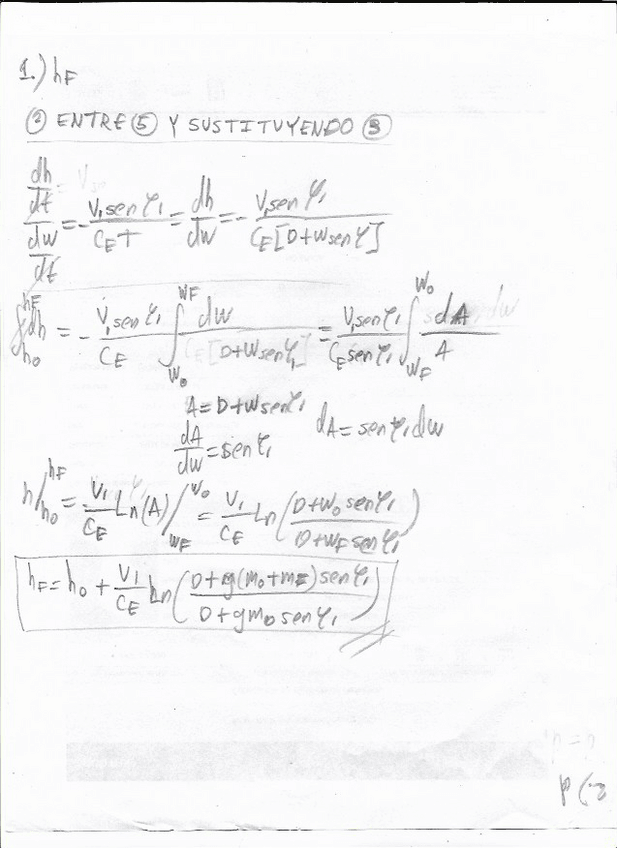 1.) hF
② ENTRE ⑤ Y SUSTITUYENDO ③
(dh/dt)/(dw/dt) = - V₁ sen φ₁ / (C_E T) = dh/dw = - V₁ sen φ₁ / (C_E [D+W sen φ])
∫_{h₀}^{hF} dh = - (V₁ sen φ₁ / C_E) ∫_{W₀}^{WF} dw / [D+W sen φ₁] = (V₁ sen φ₁ / (C_E sen φ₁)) ∫_{WF}^{W₀} dA / A
A = D+W sen φ₁
dA/dw = sen φ₁ dA = sen φ₁ dw
h/_{h₀}^{hF} = (V₁/C_E) Ln(A)/_{WF}^{W₀} = (V₁/C_E) Ln((D+W₀ sen φ₁)/(D+W_F sen φ₁))
hF = h₀ + (V₁/C_E) Ln((D+g(m₀+m_E) sen φ₁)/(D+g m₀ sen φ₁))